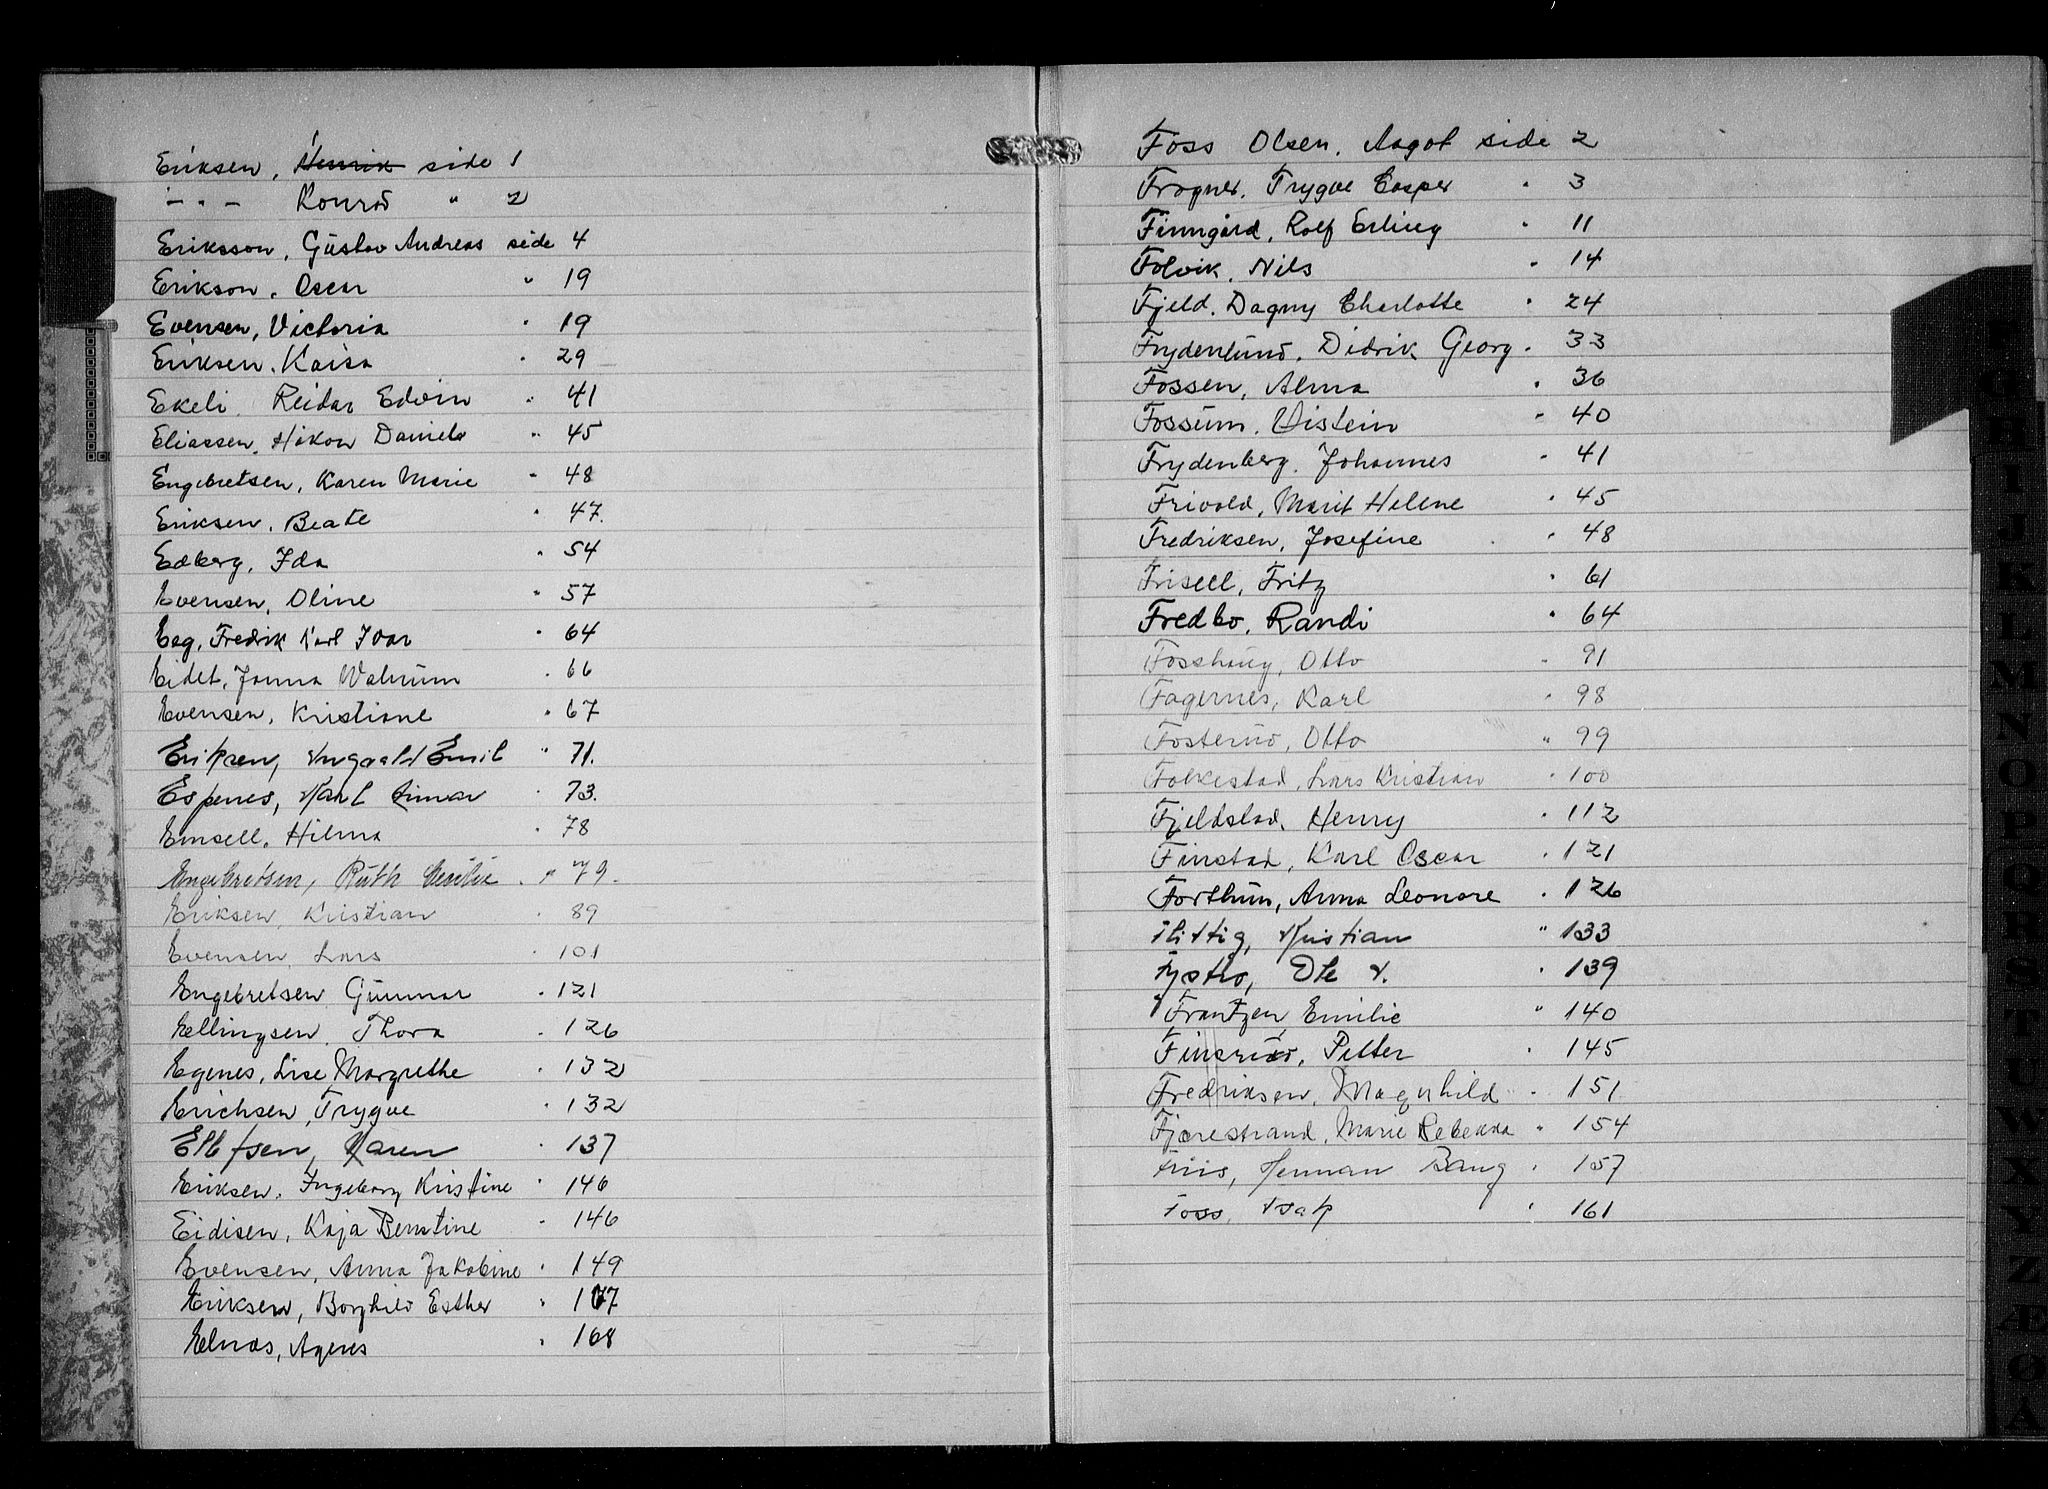 Eriksen, Henrik side 1
- " - Konrad " 2
Eriksson, Gustav Andreas side 4
Erikson, Oscar " 19
Evensen, Victoria " 19
Eriksen, Kaisa " 29
Ekeli, Reidar Edvin " 41
Eliassen, Håkon Daniels " 45
Engebretsen, Karen Marie " 48
Eriksen, Beate " 47.
Edberg, Ida " 54
Evensen, Oline " 57
Eeg, Fredrik Karl Ivar " 64
Eidet, Janna Walrum " 66
Evensen, Kristiane " 67
Eriksen, Yngvald Emil " 71.
Espenes, Karl Einar " 73.
Emsell, Hilma " 78
Engebretsen, Ruth Cecilie " 79.
Eriksen, Kristian " 89
Evensen, Lars " 101
Engebretsen, Gunnar " 121
Ellingsen, Thora " 126
Egenes, Lise Margrethe " 132
Erichsen, Trygve " 132
Ellefsen, Karen " 137
Eriksen, Ingeborg Kristine " 146
Eidisen, Kaja Berntine " 146
Evensen, Anna Jakobine " 149
Eriksen, Borghild Esther "
Elnæs, Agnes " 168
Foss Olsen, Aagot side 2
Frogner, Trygve Casper " 3
Finngård, Rolf Erling " 11
Folvik, Nils " 14
Fjeld, Dagny Charlotte " 24
Frydenlund, Didrik Georg " 33
Fossen, Alma " 36
Fossum, Øistein " 40
Frydenberg, Johannes " 41
Frivold, Marit Helene " 45
Fredriksen, Josefine " 48
Frisell, Fritz " 61
Fredbo, Randi " 64
Fosshaug, Otto " 91
Fagernes, Karl " 98
Fosterud, Otto " 99
Folkestad, Lars Kristian " 100
Fjeldstad, Henry " 112
Finstad, Karl Oscar " 121
Forthun, Anna Leonore " 126
Flittig, Kristian " 133
Fystro, Ole " 139
Frantzen, Emilie " 140
Finsrud, Petter " 145
Fredriksen, Magnhild " 151
Fjærestrand, Marie Rebekka " 154
Friis, Herman Bang " 157
Foss, Isak " 161
G
H
I
J
K
L
M
N
O
P
Q
R
S
T
U
W
X
Y
Z
Æ
Ø
A